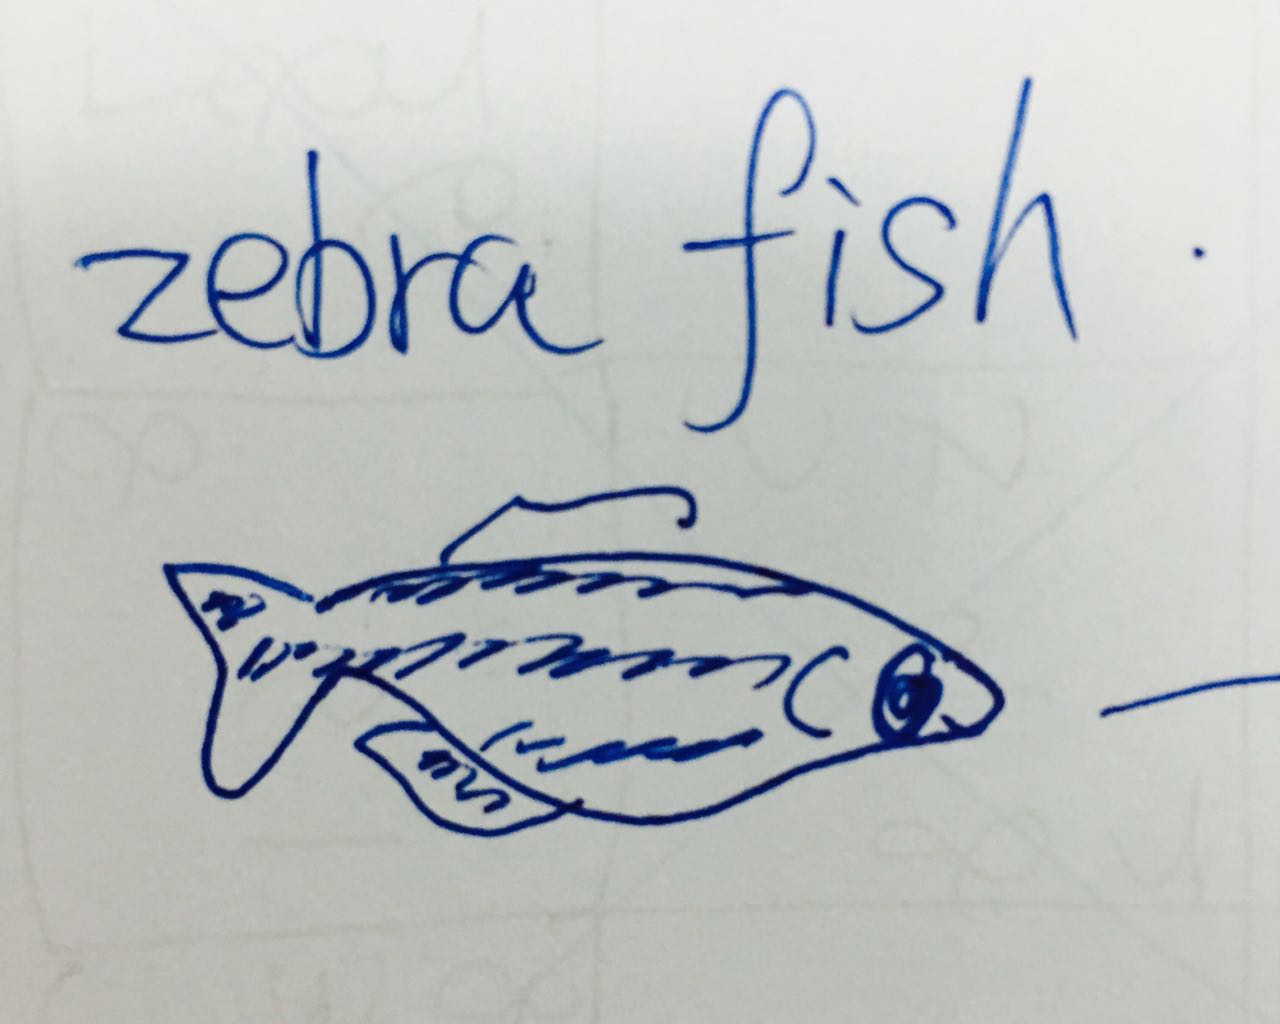 zebra fish.